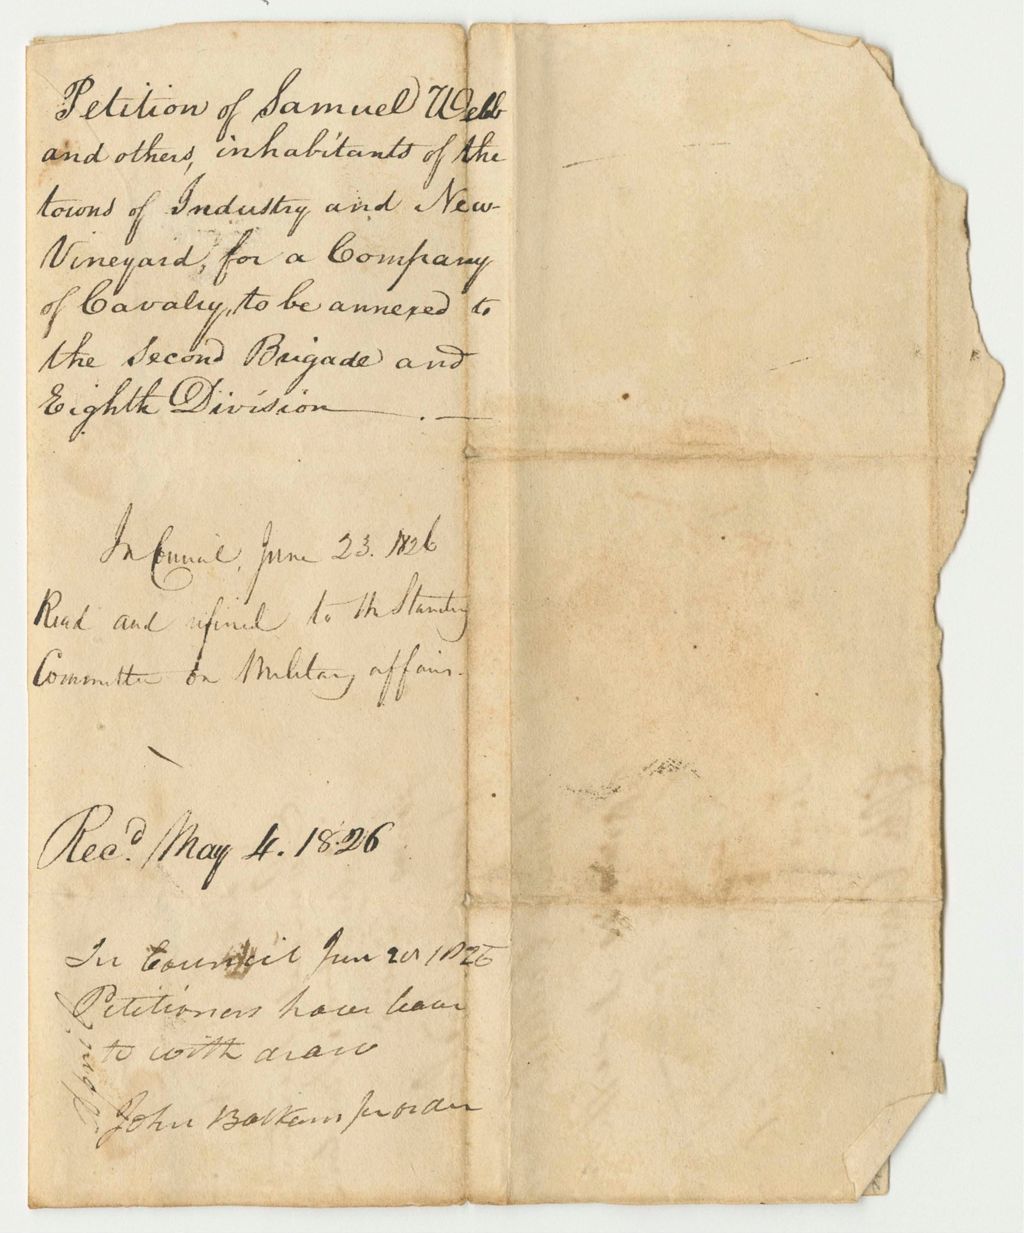 Petition of Samuel Webb
and others, inhabitants of the
towns of Industry and New-
Vineyard, for a Company
of Cavalry, to be annexed to
the Second Brigade and
Eighth Division
In Council, June 23. 1826
Read and referred to the Standing
Committee on Military affairs.
Recd. May 4. 1826
In Council Jun 1826
Petitioners have leave
to with draw
John Balkam pr order